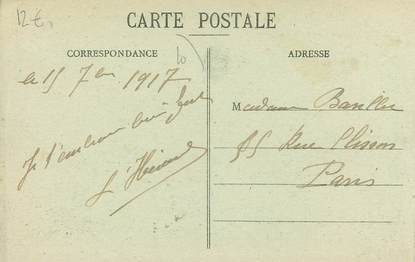 12€
CARTE POSTALE
CORRESPONDANCE
ADRESSE
le 15 7bre 1917
Je t'embrasse bien fort
Madame
55 Rue Clisson
Paris